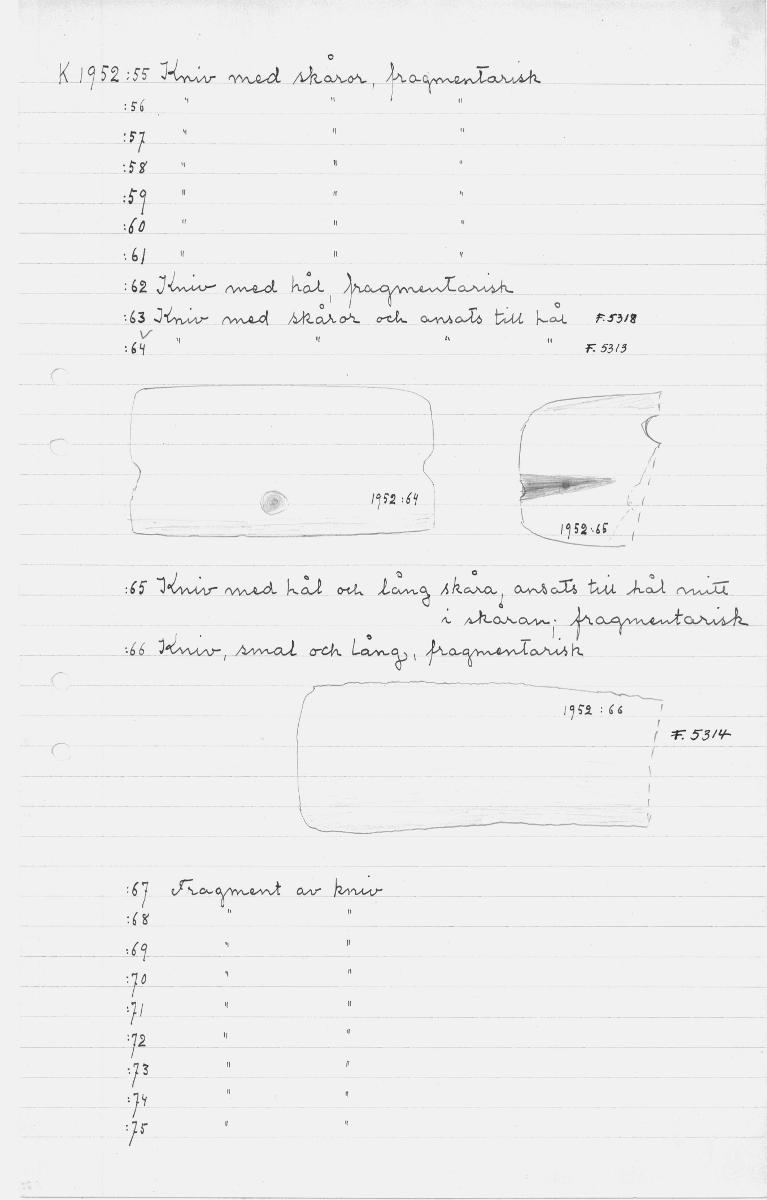 K 1952:55 Kniv med skåror, fragmentarisk
:56 " " "
:57 " " "
:58 " " "
:59 " " "
:60 " " "
:61 " " "
:62 Kniv med hål, fragmentarisk
:63 Kniv med skåror och ansats till hål F.5318
:64 " " " " F.5313
1952:64
1952:65
:65 Kniv med hål och lång skåra, ansats till hål mitt
i skåran; fragmentarisk
:66 Kniv, smal och lång, fragmentarisk
1952:66
F.5314
:67 Fragment av kniv
:68 " "
:69 " "
:70 " "
:71 " "
:72 " "
:73 " "
:74 " "
:75 " "